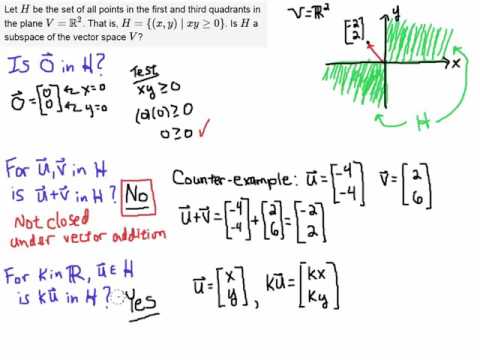 Let H be the set of all points in the first and third quadrants in
the plane V = ℝ². That is, H = {(x, y) | xy ≥ 0}. Is H a
subspace of the vector space V?
V = ℝ²
[-2
2]
y
x
H
Is 0⃗ in H?
0⃗ = [0 ← x=0
0] ← y=0
Test
xy ≥ 0
(0)(0) ≥ 0
0 ≥ 0 ✓
For u⃗, v⃗ in H
is u⃗+v⃗ in H? No
Not closed
under vector addition
Counter-example: u⃗ = [-4
-4] v⃗ = [2
6]
u⃗+v⃗ = [-4
-4] + [2
6] = [-2
2]
For K in ℝ, u⃗ ∈ H
is ku⃗ in H? Yes
u⃗ = [x
y], ku⃗ = [kx
ky]